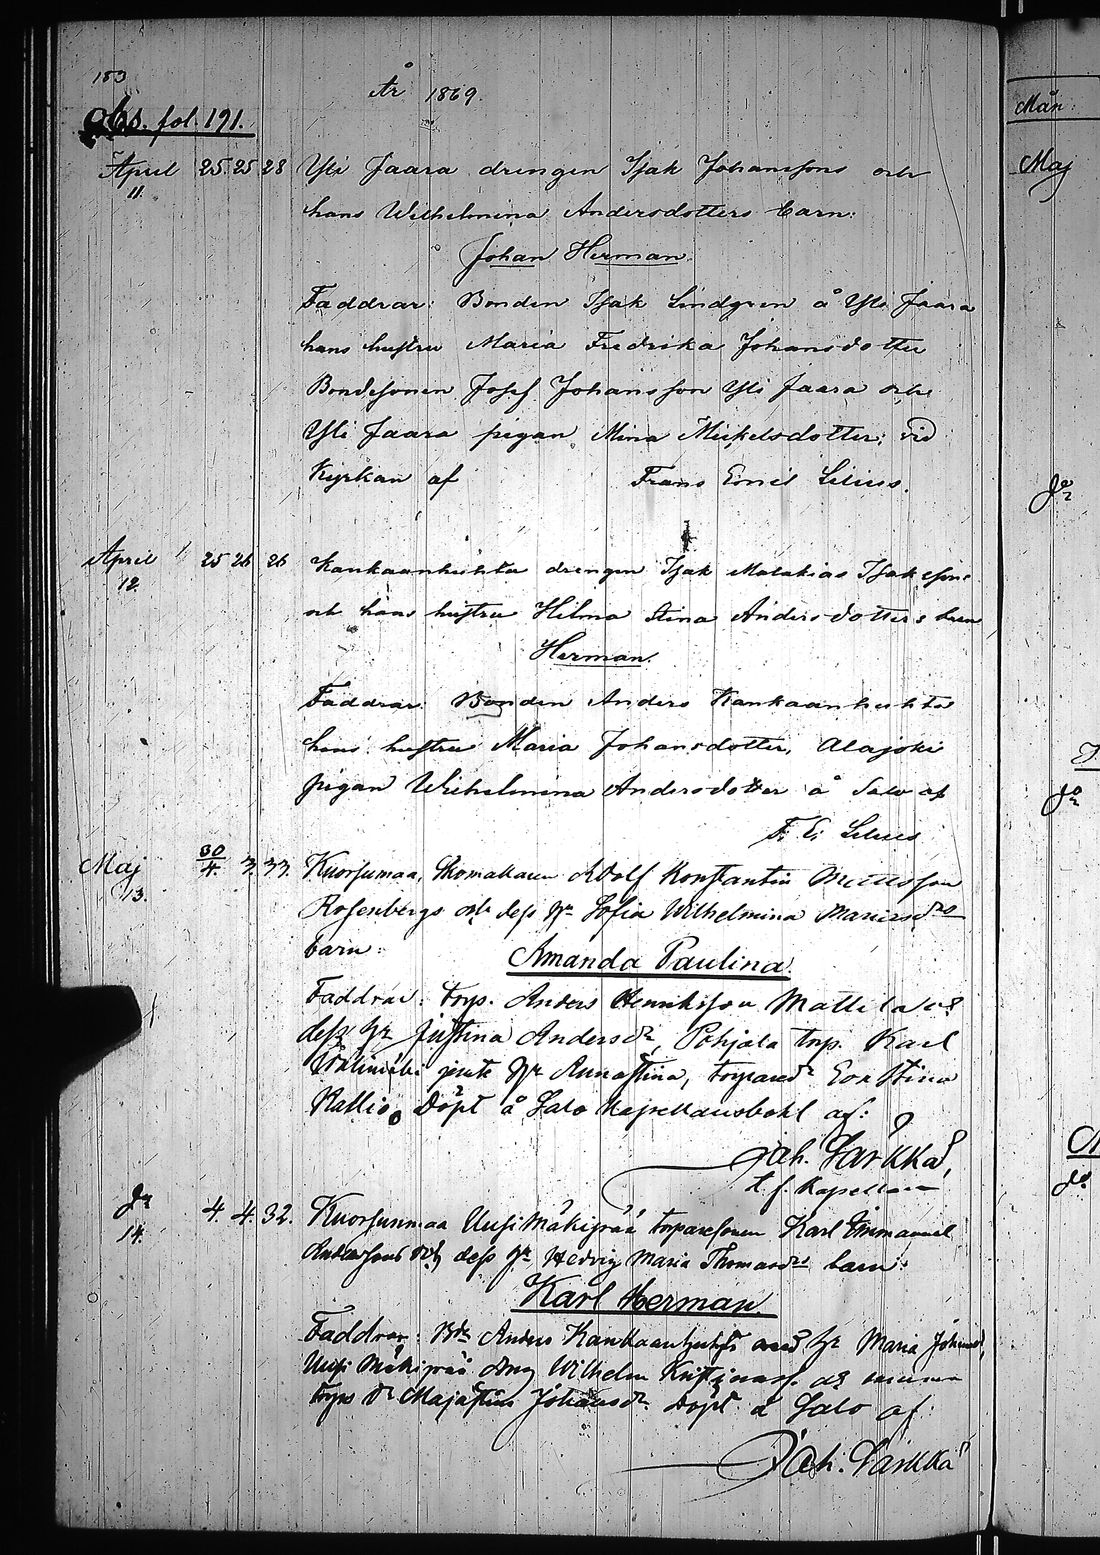 153
År 1869.
Obs. fol. 191.
April 25. 25 28 Yli Jaara drengen Isak Johanssons och
11.
hans Wilhelmina Andersdotters barn:
Johan Herman.
Faddrar: Bonden Isak Lindgren å Yli Jaara
hans hustru Maria Fredrika Johansdotter
Bondesonen Josef Johansson Yli Jaara och
Yli Jaara pigan Mina Mickelsdotter; vid
Kyrkan af Frans Emil Lilius.
April 25 26 26 Kankaanhuhta drengen Isak Malakias Isakssons
12.
och hans hustru Hilma Stina Andersdotters barn
Herman.
Faddrar: Bonden Anders Kankaanhuhta
hans hustru Maria Johansdotter, Alajoki
pigan Wilhelmina Andersdotter å Salo af
F. E. Lilius
Maj 30/4. 3. 33. Kuorsumaa, Skomakaren Adolf Konstantin
13.
Rosenbergs och dess hr Sofia Wilhelmina
barn:
Amanda Paulina.
Faddrar: torp. Anders Henriksson Mattila och
dess hr Justina Andersdr, Pohjala torp. Karl
jemte hr Annastina,
Kallio. Döpt å Salo Kapellansbohl af:
Joh. Särkkä,
t. f. Kapellan
do 4. 4. 32. Kuorsunmaa Uusi Mäkipää torparesonen Karl Emmanuel
14.
Anderssons och dess hr Hedvig Maria Thomasdrs barn:
Karl Herman.
Faddrar: Bdn Anders Kankaanhuhta med hr Maria Johansd,
Uusi Mäkipää dräng Wilhelm
torps dr Majastina Johansdr. Döpt å Salo af
Joh. Särkkä
Mån
Maj
do
do
do